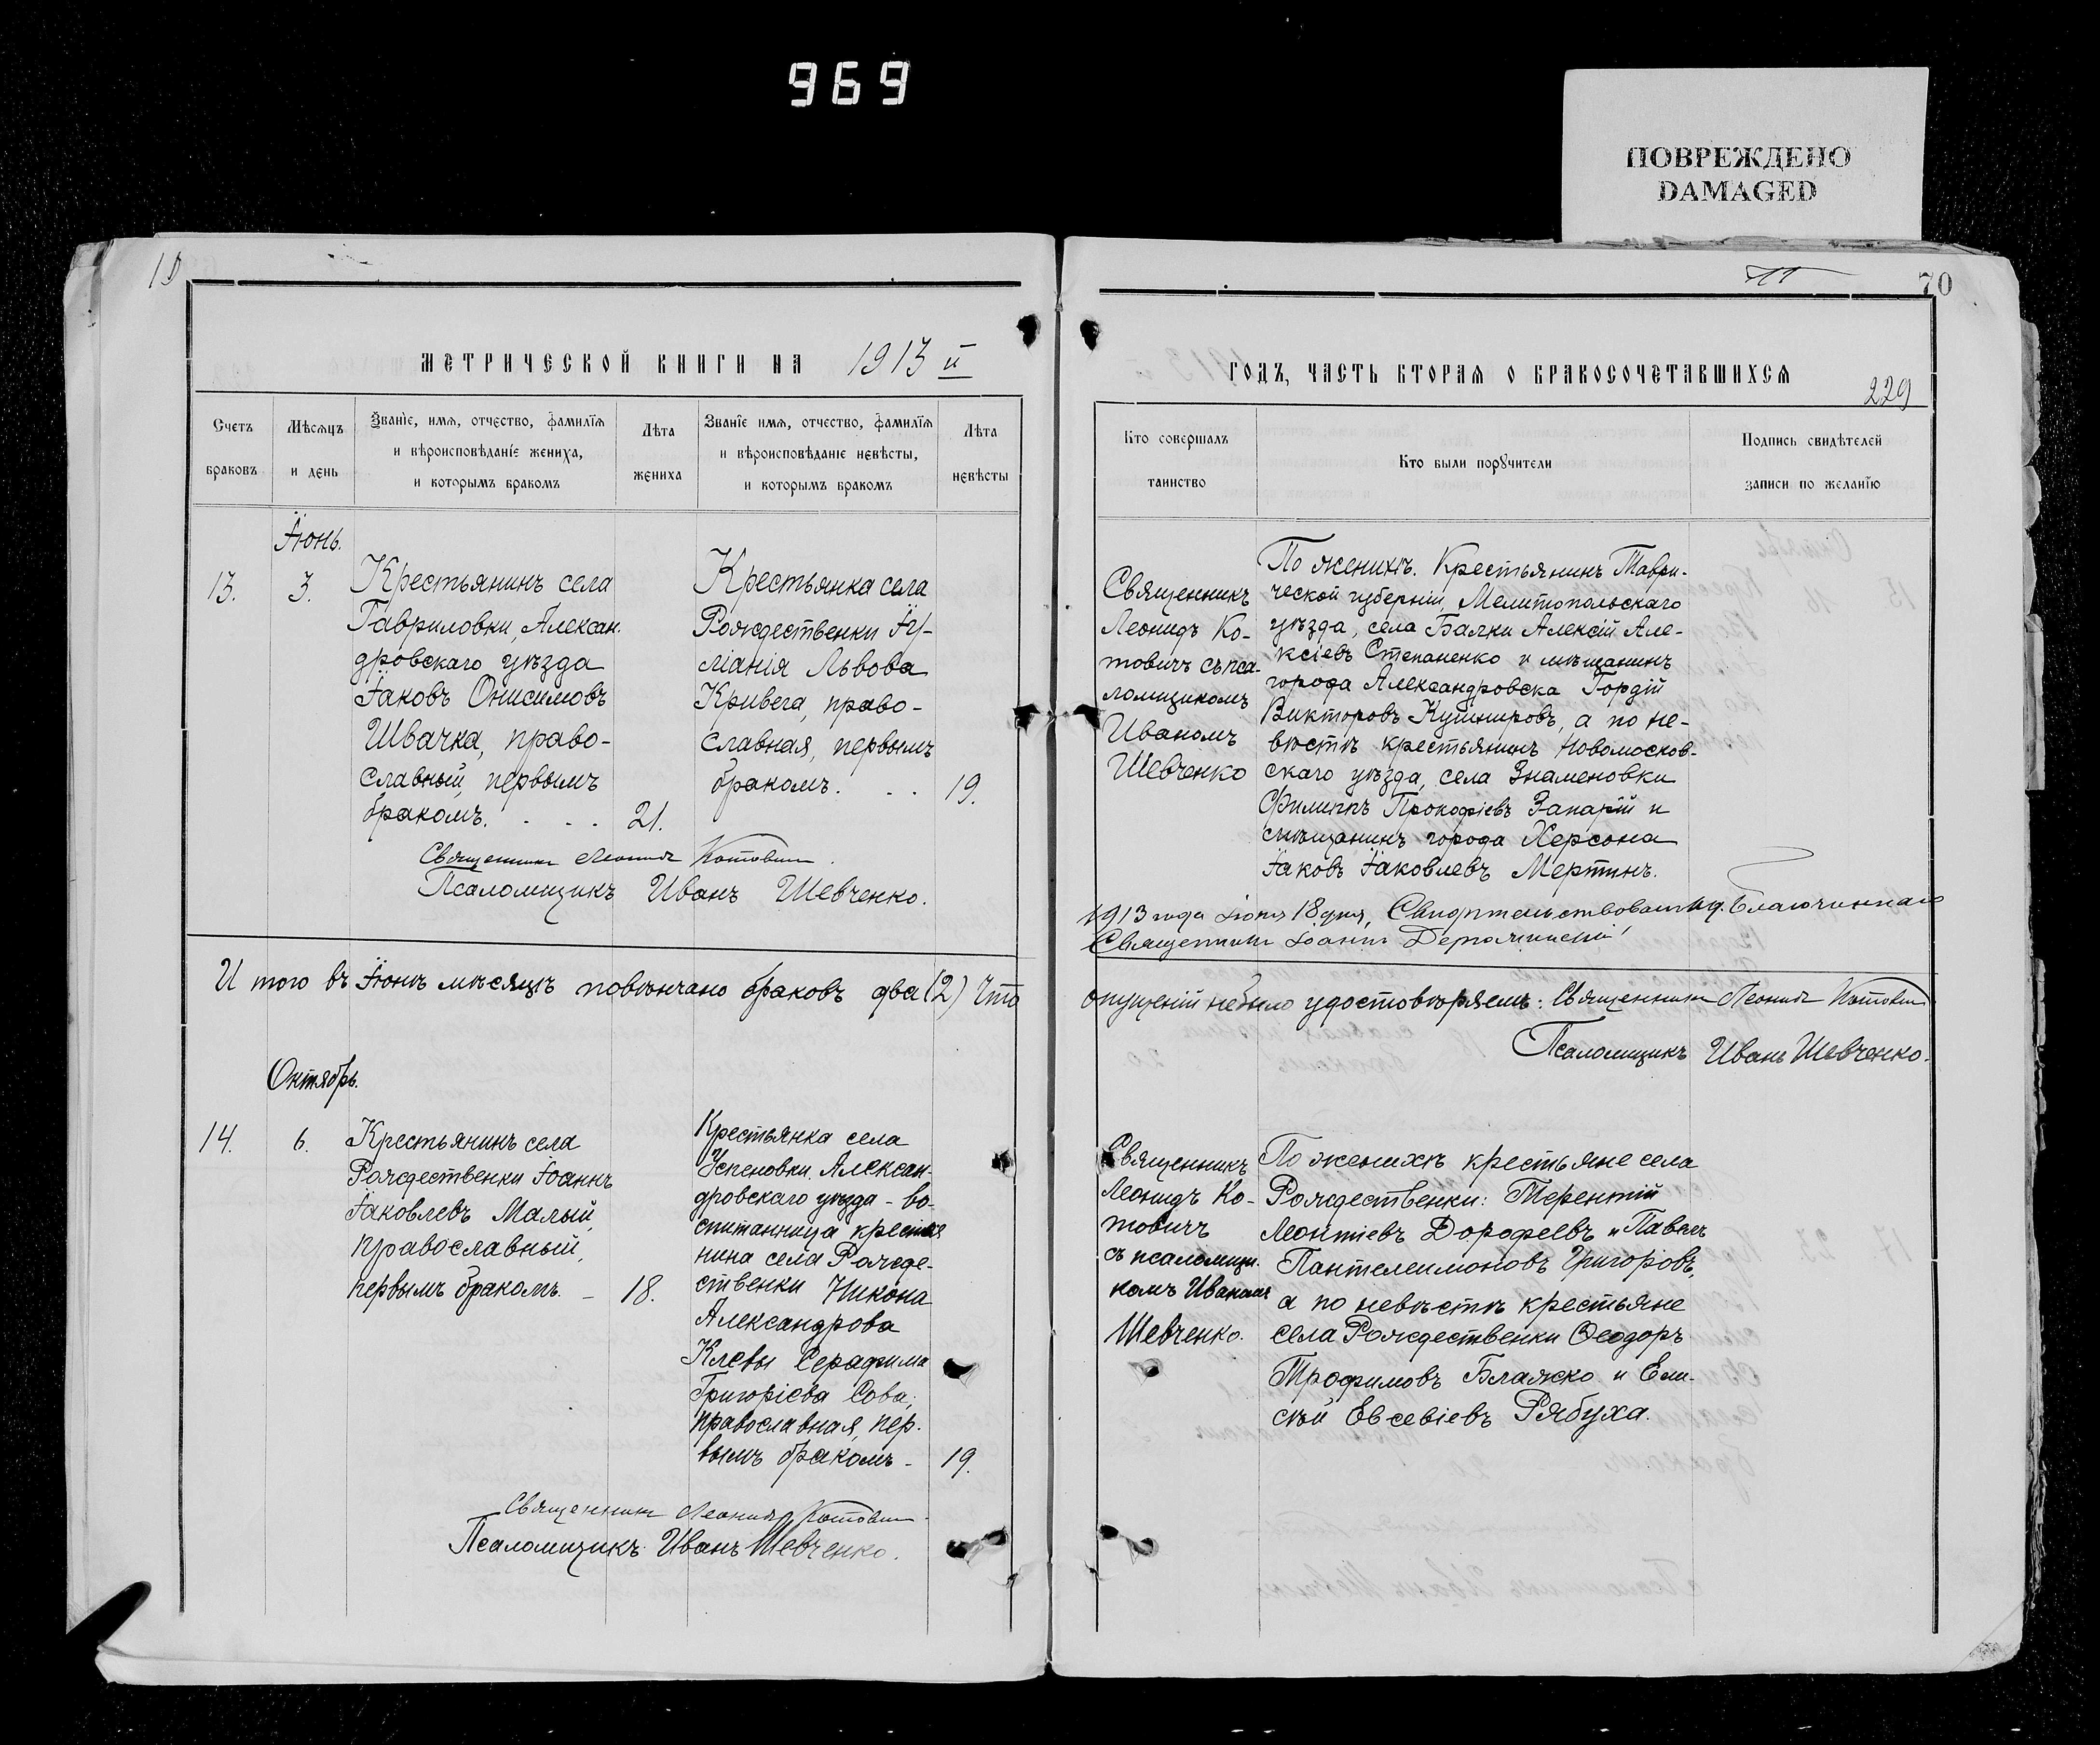 969
ПОВРЕЖДЕНО
DAMAGED
10
70
МЕТРИЧЕСКОЙ КНИГИ НА 1913 й
ГОДЪ, ЧАСТЬ ВТОРАЯ О БРАКОСОЧЕТАВШИХСЯ
229
Счетъ браковъ
Мѣсяцъ и день
Званіе, имя, отчество, фамилія и вѣроисповѣданіе жениха, и которымъ бракомъ
Лѣта жениха
Званіе имя, отчество, фамилія и вѣроисповѣданіе невѣсты, и которымъ бракомъ
Лѣта невѣсты
Кто совершалъ таинство
Кто были поручители
Подпись свидѣтелей записи по желанію
Іюнь.
13.
3.
Крестьянинъ села
Гавриловки, Алексан-
дровскаго уѣзда
Іаковъ Онисимовъ
Швачка, право-
славный, первымъ
бракомъ. . . .
21.
Крестьянка села
Рождественки Іу-
ліанія Львова
Кривега, право-
славная, первымъ
бракомъ. . .
19.
Священникъ
Леонидъ Ко-
товичъ съ пса-
ломщикомъ
Иваномъ
Шевченко
По женихѣ. Крестьянинъ Таври-
ческой губерніи, Мелитопольскаго
уѣзда, села Балки Алексій Але-
ксіевъ Степаненко и мѣщанинъ
города Александровска Гордій
Викторовъ Кушнировъ, а по не-
вѣстѣ крестьянинъ Новомосков-
скаго уѣзда, села Знаменовки
Филиппъ Прокофіевъ Запарій и
мѣщанинъ города Херсона
Іаковъ Іаковлевъ Мертинъ.
Священникъ Леонидъ Котовичъ.
Псаломщикъ Иванъ Шевченко.
1913 года Іюня 18 дня, Свидѣтельствовалъ и.д. Благочиннаго
Священникъ Іоаннъ
И того въ Іюнѣ мѣсяцѣ повѣнчано браковъ два (2) Что
опущеній небыло удостовѣряемъ: Священникъ Леонидъ Котовичъ
Псаломщикъ Иванъ Шевченко.
Октябрь.
14.
6.
Крестьянинъ села
Рождественки Іоаннъ
Іаковлевъ Малый,
православный,
первымъ бракомъ. –
18.
Крестьянка села
Успеновки, Алексан-
дровскаго уѣзда - во-
спитанница крестья
нина села Рожде-
ственки Никона
Александрова
Клевы Серафима
Григоріева Сова,
православная, пер-
вымъ бракомъ –
19.
Священникъ
Леонидъ Ко-
товичъ
съ псаломщи-
комъ Иваномъ
Шевченко.
По женихѣ крестьяне села
Рождественки: Терентій
Леонтіевъ Дорофеевъ и Павелъ
Пантелеимоновъ Григоровъ,
а по невѣстѣ крестьяне
села Рождественки Ѳеодоръ
Трофимовъ Блажко и Ели-
сѣй Евсевіевъ Рябуха.
Священникъ Леонидъ Котовичъ.
Псаломщикъ Иванъ Шевченко.